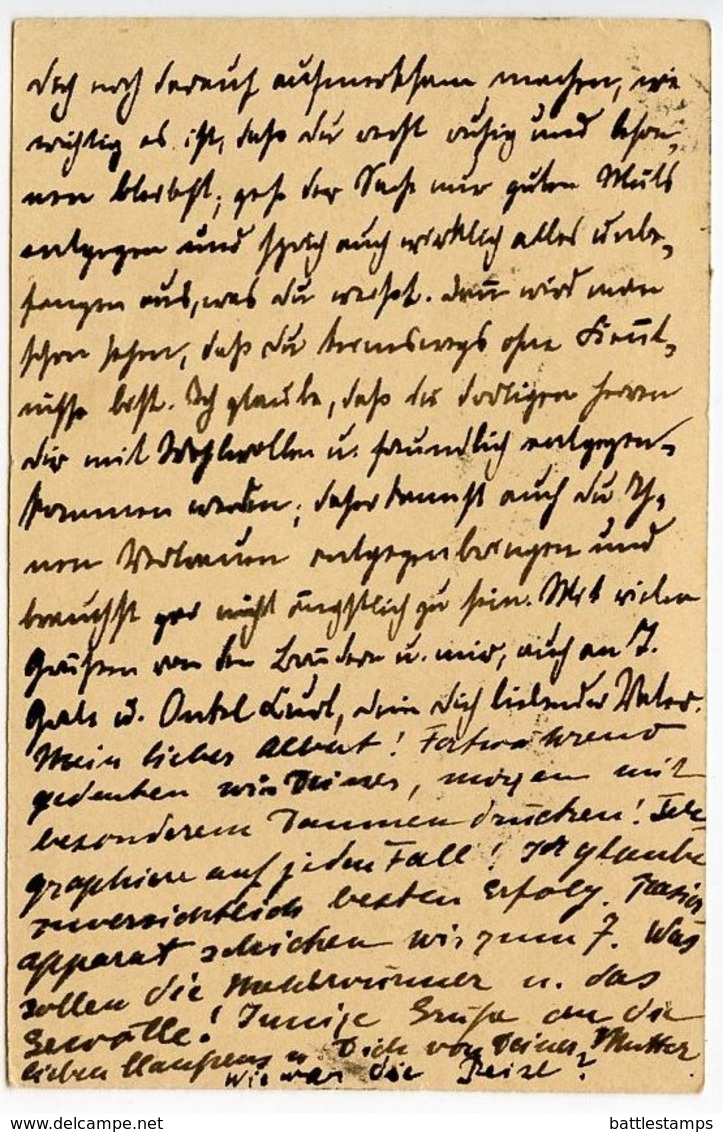 doch noch darauf aufmerksam machen, wie
wichtig es ist, daß du recht ruhig und beson-
nen bleibst; geh der Sache nur guten Muts
entgegen und sprich auch wirklich alles unbe-
fangen aus, was du weißt. Dann wird man
schon sehen, daß du keineswegs ohne Kennt-
nisse bist. Ich glaube, daß die dortigen Herren
dir mit Wohlwollen u. freundlich entgegen-
kommen werden; daher kannst auch du Ih-
nen Vertrauen entgegenbringen und
brauchst gar nicht ängstlich zu sein. Mit vielen
Grüßen von den Brüdern u. mir, auch an T.
u. Onkel Kurt, dein dich liebender Vater.
Mein lieber Albert! Fortwährend
gedenken wir Deiner, morgen mit
besonderem Daumendrücken! Tele-
graphiere auf jeden Fall! Ich glaube
zuversichtlich besten Erfolg. Rasier
apparat schicken wir zum 7. Was
sollen die u. das
Gewölle! Innige Grüße an die
lieben u. Dich von Deiner Mutter.
Wie war die Reise?
battlestamps